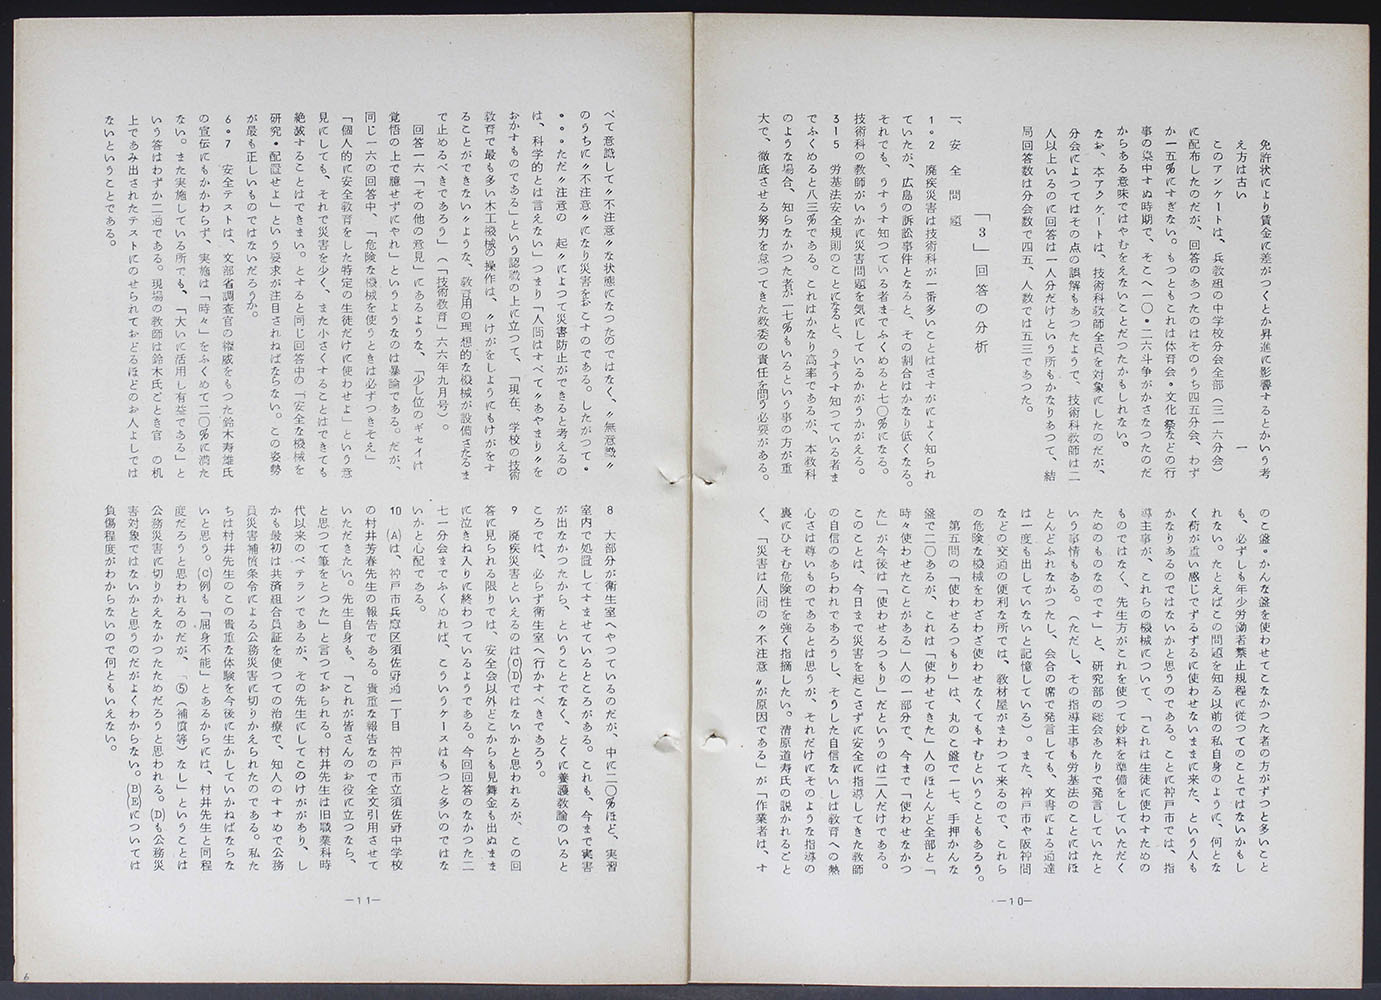 免許状により賃金に差がつくとか昇進に影響するとかいう考
え方は古い
一
このアンケートは、兵教組の中学校分会全部(三一六分会)
に配布したのだが、回答のあつたのはそのうち四五分会、わず
か一五%にすぎない。もつともこれは体育会・文化祭などの行
事の集中すぬ時期で、そこへ一〇・二六斗争がかさなつたのだ
からある意味ではやむをえないことだつたかもしれない。
なお、本アンケートは、技術科教師全員を対象にしたのだが、
分会によつてはその点の誤解もあつたようで、技術科教師は二
人以上いるのに回答は一人分だけという所もかなりあつて、結
局回答数は分会数で四五、人数では五三であつた。
「3」回答の分析
一、安全問題
1・2 廃疾災害は技術科が一番多いことはさすがによく知られ
ていたが、広島の訴訟事件となると、その割合はかなり低くなる。
それでも、うすうす知つている者までふくめると七〇%になる。
技術科の教師がいかに災害問題を気にしているかがうかがえる。
3―5 労基法安全規則のことになると、うすうす知つている者ま
でふくめると八三%である。これはかなり高率であるが、本教科
のような場合、知らなかつた者が一七%もいるという事の方が重
大で、徹底させる努力を怠つてきた教委の責任を問う必要がある。
のこ盤・かんな盤を使わせてこなかつた者の方がずつと多いこと
も、必ずしも年少労働者禁止規程に従つてのことではないかもし
れない。たとえばこの問題を知る以前の私自身のように、何とな
く荷が重い感じでずるずるに使わせないままに来た、という人も
かなりあるのではないかと思うのである。ことに神戸市では、指
導主事が、これらの機械について、「これは生徒に使わすための
ものではなく、先生方がこれを使つて妙料を準備をしていただく
ためのものなのです」と、研究部の総会あたりで発言していたと
いう事情もある。(ただし、その指導主事も労基法のことにはほ
とんどふれなかつたし、会合の席で発言しても、文書による通達
は一度も出していないと記憶している)。また、神戸市や阪神間
などの交通の便利な所では、教材屋がまわつて来るので、これら
の危険な機械をわざわざ使わせなくてもすむということもあろう。
第五問の「使わせるつもり」は、丸のこ盤で一七、手押かんな
盤で二〇あるが、これは「使わせてきた」人のほとんど全部と「
時々使わせたことがある」人の一部分で、今まで「使わせなかつ
た」が今後は「使わせるつもり」だというのは二人だけである。
このことは、今日まで災害を起こさずに安全に指導してきた教師
の自信のあらわれであろうし、そうした自信ないしは教育への熱
心さは尊いものであるとは思うが、それだけにそのような指導の
裏にひそむ危険性を強く指摘したい。清原道寿氏の説かれるごと
く、「災害は人間の〃不注意〃が原因である」が「作業者は、す
―10―
べて意識して〃不注意〃な状態になつたのではなく、〃無意識〃
のうちに〃不注意〃になり災害をおこすのである。したがつて・
・・・ただ〃注意の 起〃によつて災害防止ができると考えるの
は、科学的とは言えない」つまり「人間はすべて〃あやまり〃を
おかすものである」という認識の上に立つて、「現在、学校の技術
教育で最も多い木工機械の操作は、〃けがをしようにもけがをす
ることができない〃ような、教育用の理想的な機械が設備さたるま
で止めるべきであろう」(「技術教育」六六年九月号)。
回答一六「その他の意見」にあるような、「少し位のギセイは
覚悟の上で臆せずにやれ」というようなのは暴論である。だが、
同じ一六の回答中、「危険な機械を使うときは必ずつきそえ」
「個人的に安全教育をした特定の生徒だけに使わせよ」という意
見にしても、それで災害を少く、また小さくすることはできても
絶滅することはできまい。とすると同じ回答中の「安全な機械を
研究・配置せよ」という要求が注目されねばならない。この姿勢
が最も正しいものではないだろうか。
6・7 安全テストは、文部省調査官の権威をもつた鈴木寿雄氏
の宣伝にもかかわらず、実施は「時々」をふくめて二〇%に満た
ない。また実施している所でも、「大いに活用し有益である」と
いう答はわずか二通である。現場の教師は鈴木氏ごとき官 の机
上であみ出されたテストにのせられておどるほどのお人よしでは
ないということである。
8 大部分が衛生室へやつているのだが、中に二〇%ほど、実習
室内で処置してすませているところがある。これも、今まで実害
が出なかつたから、ということでなく、とくに養護教諭のいると
ころでは、必らず衛生室へ行かすべきであろう。
9 廃疾災害といえるのは(C)(D)ではないかと思われるが、この回
答に見られる限りでは、安全会以外どこからも見舞金も出ぬまま
に泣きね入りに終わつているようである。今回回答のなかつた二
七一分会までふくめれば、こういうケースはもつと多いのではな
いかと心配である。
10 (A)は、神戸市兵庫区須佐野通一丁目 神戸市立須佐野中学校
の村井芳春先生の報告である。貴重な報告なので全文引用させて
いただきたい。先生自身も、「これが皆さんのお役に立つなら、
と思つて筆をとつた」と言つておられる。村井先生は旧職業科時
代以来のベテランであるが、その先生にしてこのけががあり、し
かも最初は共済組合員証を使つての治療で、知人のすすめで公務
員災害補償条令による公務災害に切りかえられたのである。私た
ちは村井先生のこの貴重な体験を今後に生かしていかねばならな
いと思う。(C)例も「屈身不能」とあるからには、村井先生と同程
度だろうと思われるのだが、「⑤(補償等)なし」ということは
公務災害に切りかえなかつたためだろうと思われる。(D)も公務災
害対象ではないかと思うのだがよくわからない。(B)(E)については
負傷程度がわからないので何ともいえない。
―11―
6